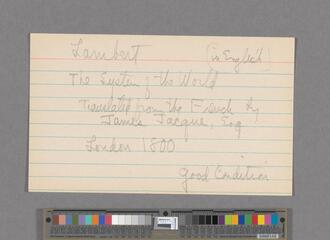 Lambert (in English)
The System of the World
Translated from the French by
James Jacque, Esq
London 1800
Good Condition